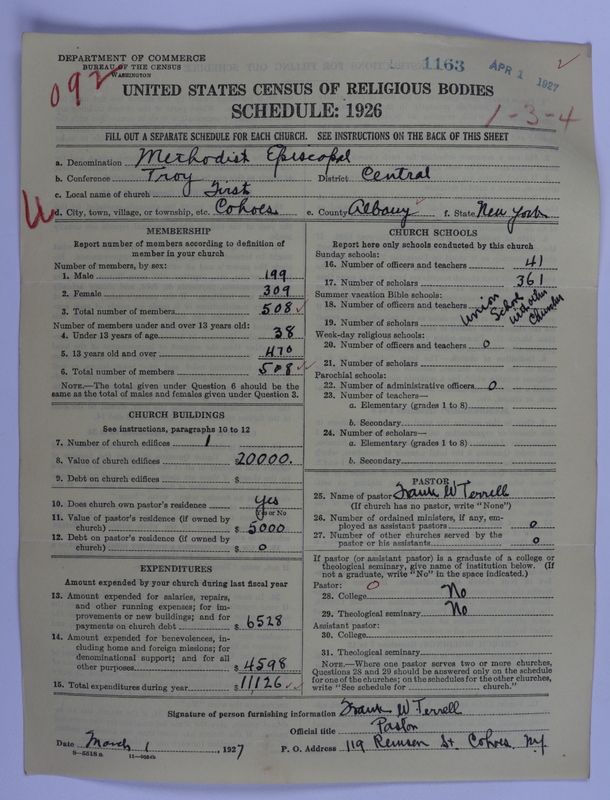 DEPARTMENT OF COMMERCE
BUREAU OF THE CENSUS
WASHINGTON
092
1163
APR 1 1927
1-3-4
UNITED STATES CENSUS OF RELIGIOUS BODIES
SCHEDULE: 1926
FILL OUT A SEPARATE SCHEDULE FOR EACH CHURCH. SEE INSTRUCTIONS ON THE BACK OF THIS SHEET
a. Denomination Methodist Episcopal
b. Conference Troy District Central
c. Local name of church First
d. City, town, village, or township, etc. Cohoes e. County Albany f. State New York
MEMBERSHIP
Report number of members according to definition of
member in your church
Number of members, by sex:
1. Male 199
2. Female 309
3. Total number of members 508
Number of members under and over 13 years old:
4. Under 13 years of age 38
5. 13 years old and over 470
6. Total number of members 508
NOTE.—The total given under Question 6 should be the
same as the total of males and females given under Question 3.
CHURCH BUILDINGS
See instructions, paragraphs 10 to 12
7. Number of church edifices 1
8. Value of church edifices $20000.
9. Debt on church edifices $
10. Does church own pastor's residence Yes
Yes or No
11. Value of pastor's residence (if owned by
church) $ 5000
12. Debt on pastor's residence (if owned by
church) $ 0
EXPENDITURES
Amount expended by your church during last fiscal year
13. Amount expended for salaries, repairs,
and other running expenses; for im-
provements or new buildings; and for
payments on church debt $ 6528
14. Amount expended for benevolences, in-
cluding home and foreign missions; for
denominational support; and for all
other purposes $ 4598
15. Total expenditures during year $ 11126
CHURCH SCHOOLS
Report here only schools conducted by this church
Sunday schools:
16. Number of officers and teachers 41
17. Number of scholars 361
Summer vacation Bible schools:
18. Number of officers and teachers
19. Number of scholars
Union School with other Churches
Week-day religious schools:
20. Number of officers and teachers 0
21. Number of scholars
Parochial schools:
22. Number of administrative officers 0
23. Number of teachers—
a. Elementary (grades 1 to 8)
b. Secondary
24. Number of scholars—
a. Elementary (grades 1 to 8)
b. Secondary
PASTOR
25. Name of pastor Frank W Terrell
(If church has no pastor, write "None")
26. Number of ordained ministers, if any, em-
ployed as assistant pastors 0
27. Number of other churches served by the
pastor or his assistants 0
If pastor (or assistant pastor) is a graduate of a college or
theological seminary, give name of institution below. (If
not a graduate, write "No" in the space indicated.)
Pastor: 0
28. College No
29. Theological seminary No
Assistant pastor:
30. College
31. Theological seminary
NOTE.—Where one pastor serves two or more churches,
Questions 28 and 29 should be answered only on the schedule
for one of the churches; on the schedules for the other churches,
write "See schedule for church."
Signature of person furnishing information Frank W Terrell
Official title Pastor
Date March 1 1927 P. O. Address 119 Remsen St. Cohoes, N.Y.